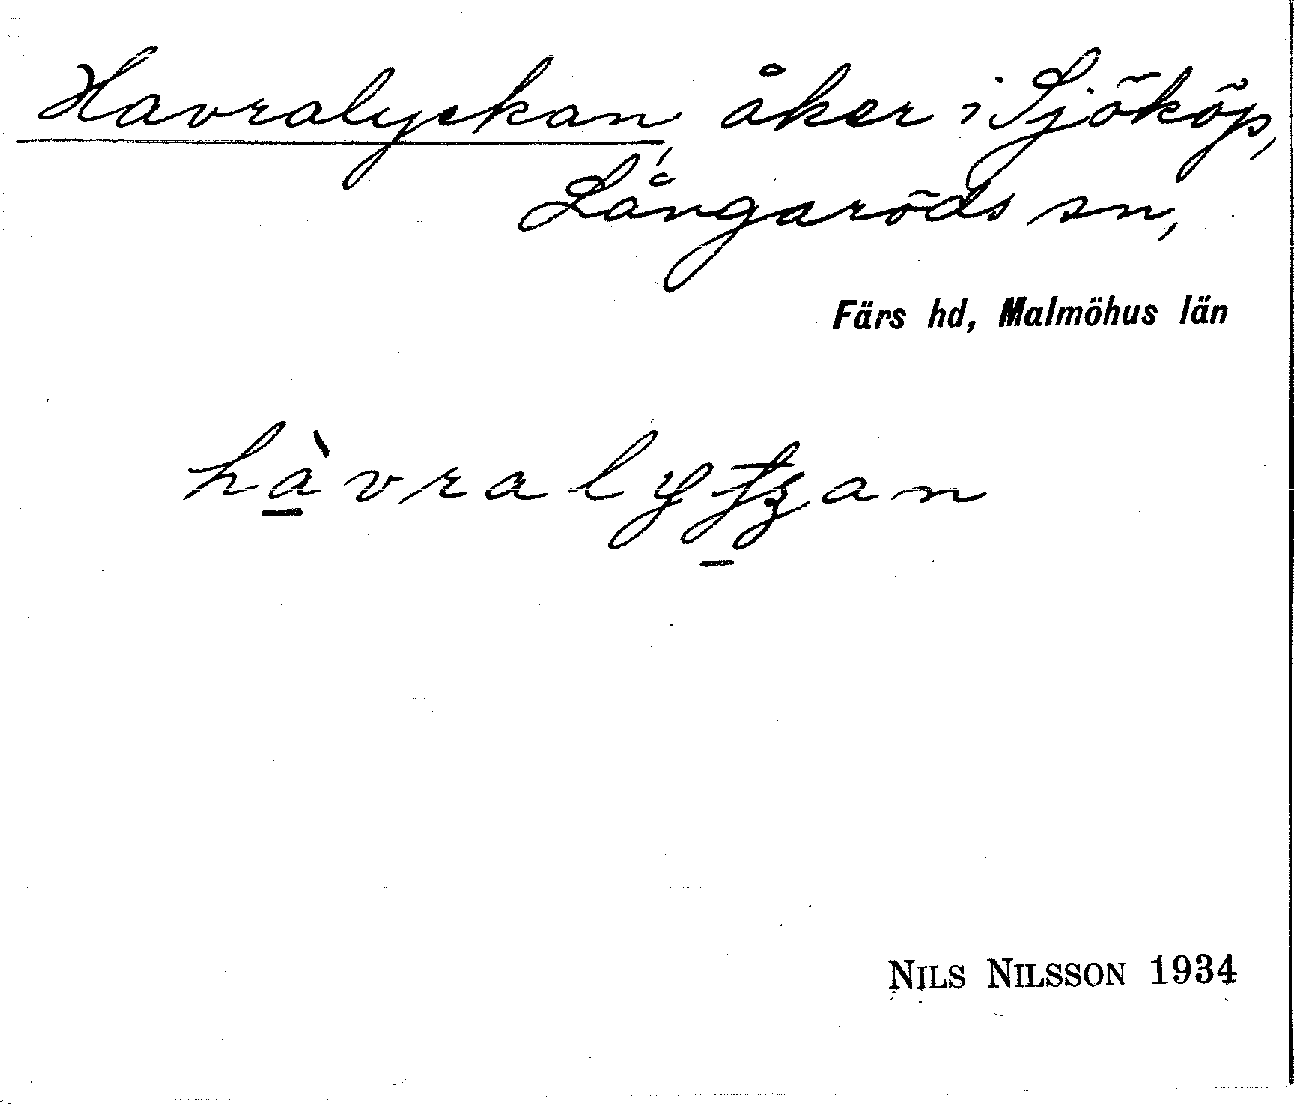 Havralyckan, åker i Sjököp,
Långaröds sn,
Färs hd, Malmöhus län
NILS NILSSON 1934